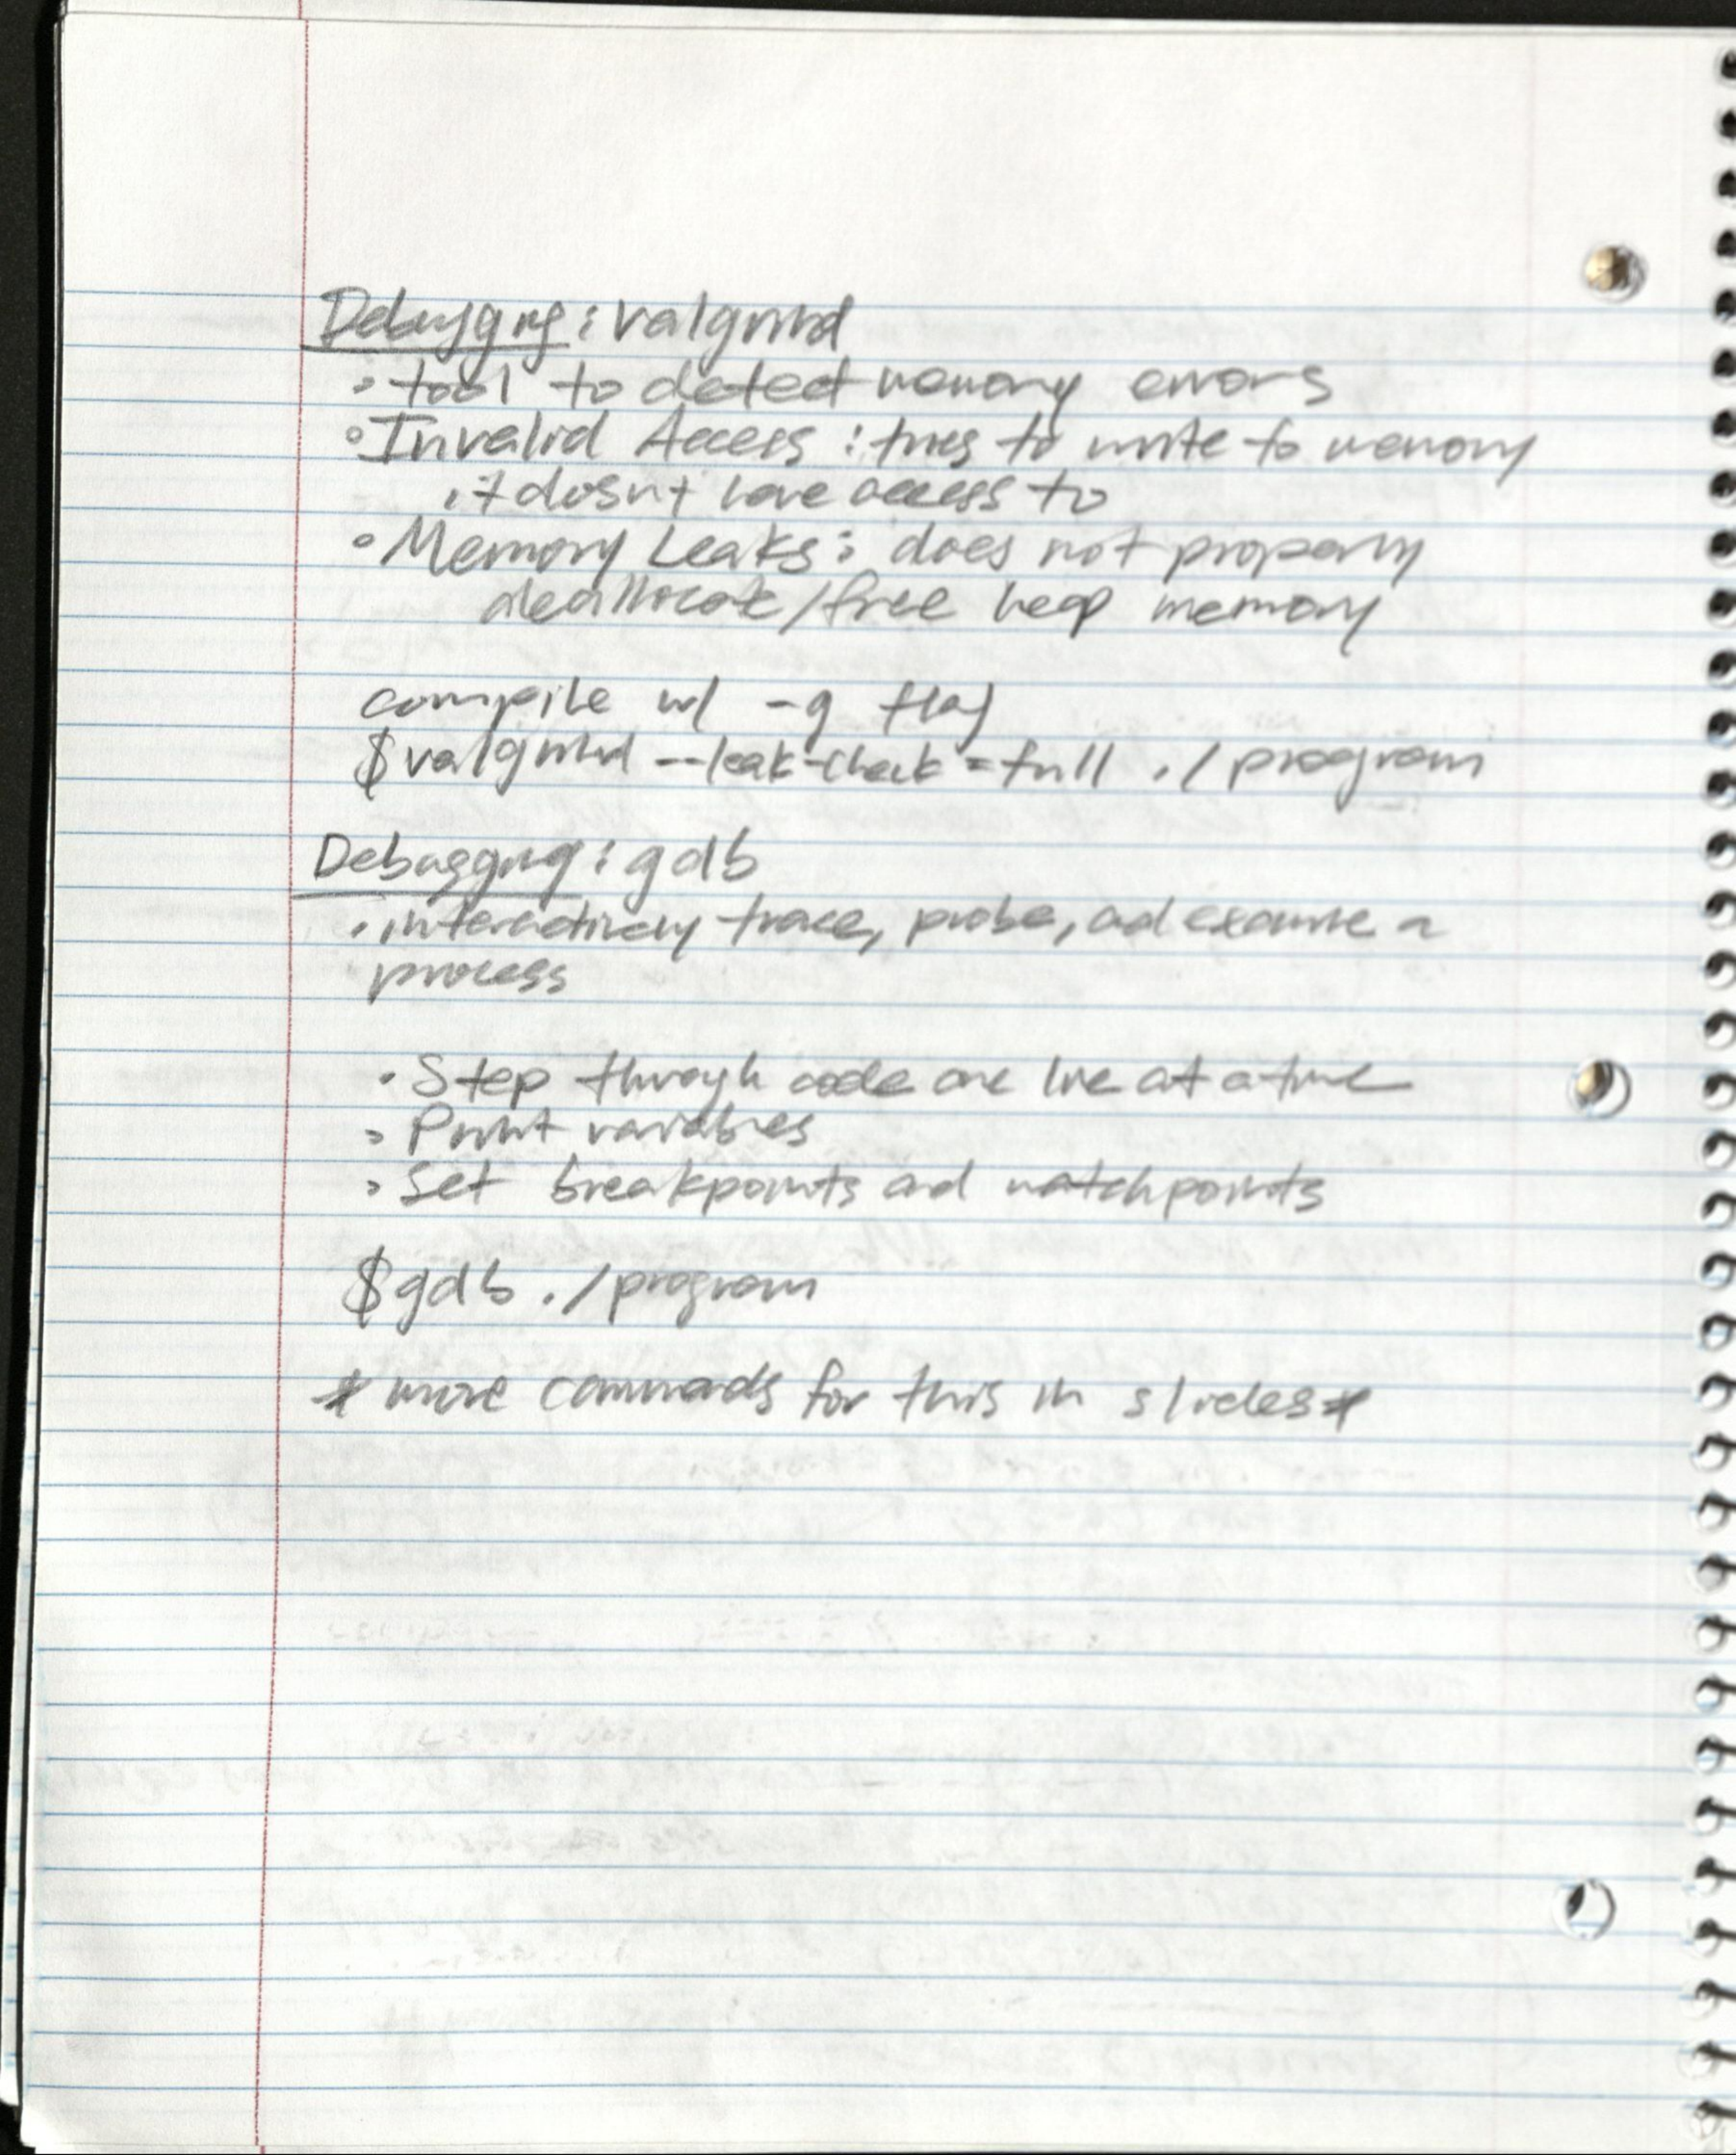 Debugging: valgrind
◦ tool to detect memory errors
◦ Invalid Access: tries to write to memory
it dosn't have access to
◦ Memory Leaks: does not properly
deallocate/free heap memory
compile w/ -g flag
$ valgrind --leak-check=full ./program
Debugging: gdb
• interactively trace, probe, and examine a
process
• Step through code one line at a time
• Print variables
• Set breakpoints and watchpoints
$ gdb ./program
* more commands for this in slides*